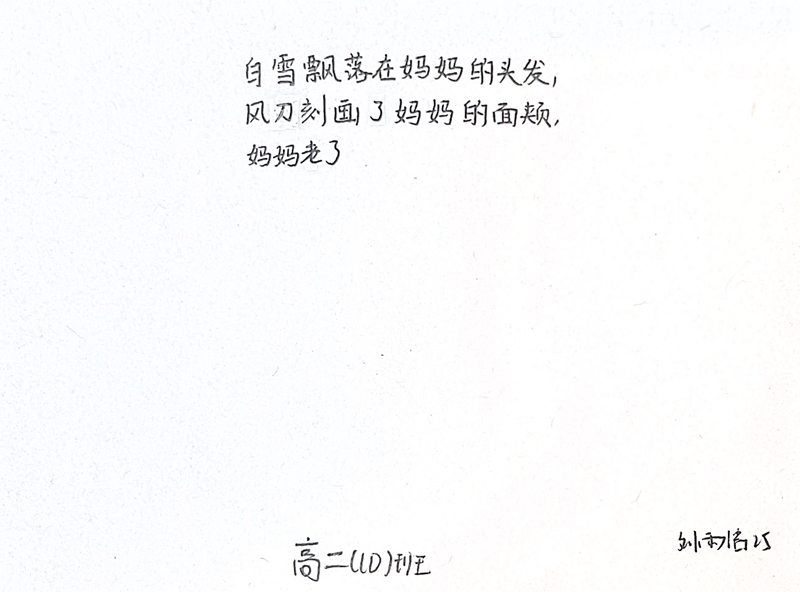 白雪飘落在妈妈的头发,
风刀刻画了妈妈的面颊,
妈妈老了
高二(10)班
25